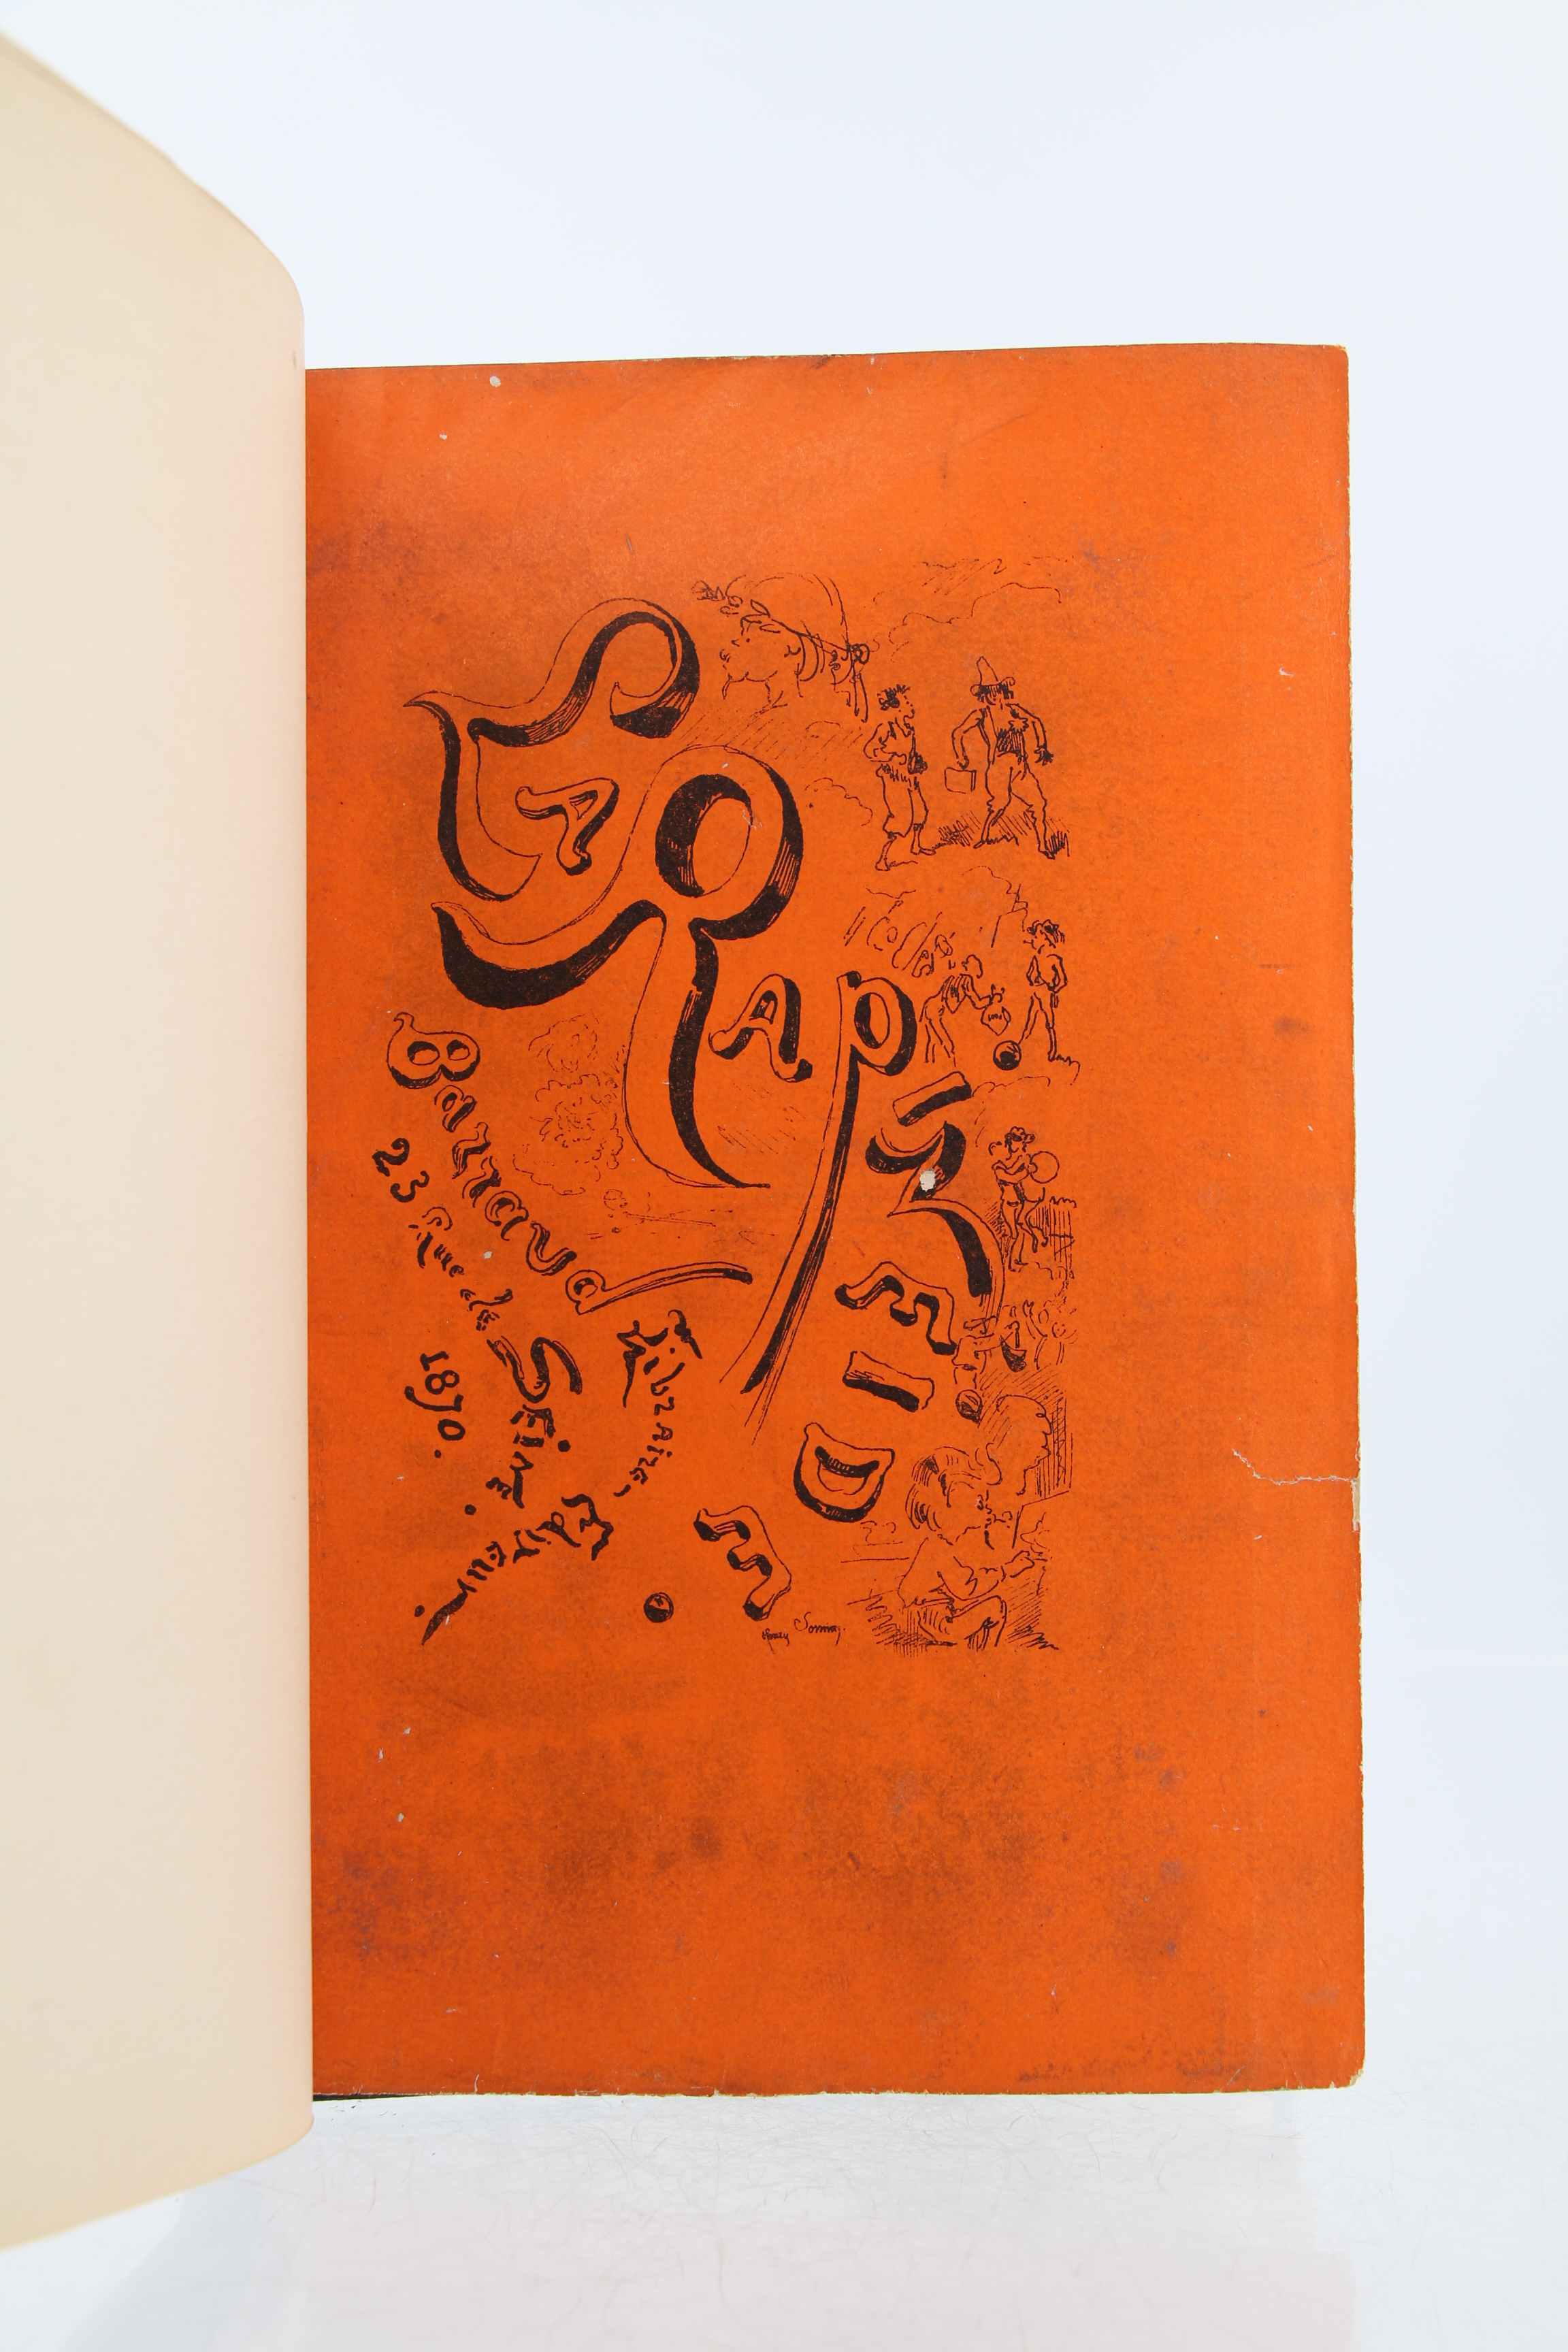 LA
RAPINÉIDE.
Barraud
23 Rue de SEINE.
Libraire-
Editeur.
1870.
Henry Somm